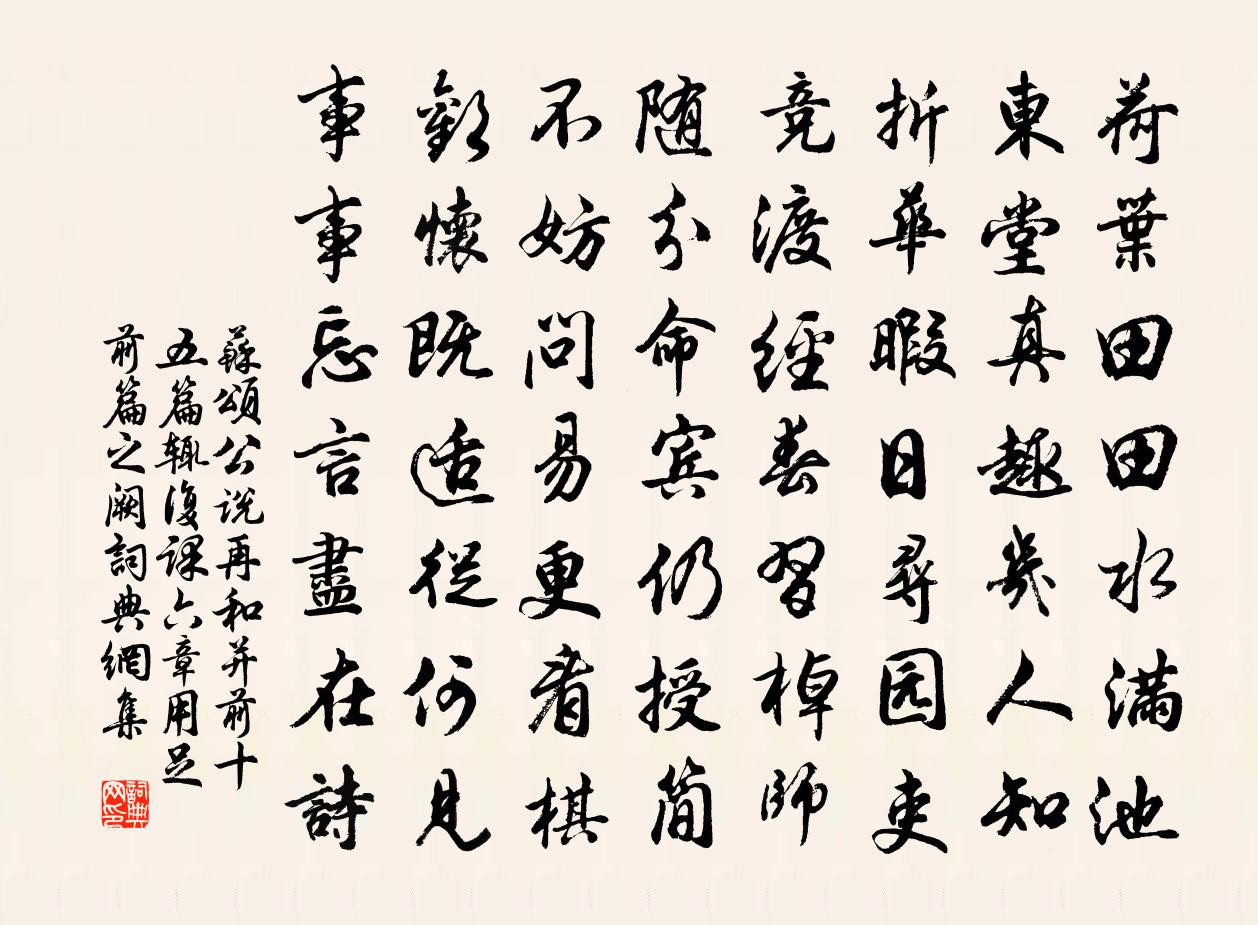 荷葉田田水満池
東堂真趣幾人知
折華暇日尋园吏
竞渡經春習棹師
随分命宾仍授简
不妨問易更看棋
歡懷既适從何見
事事忘言盡在詩
蘇頌公説再和并前十
五篇辄復課六章用足
前篇之阙詞典網集
詞典
网印